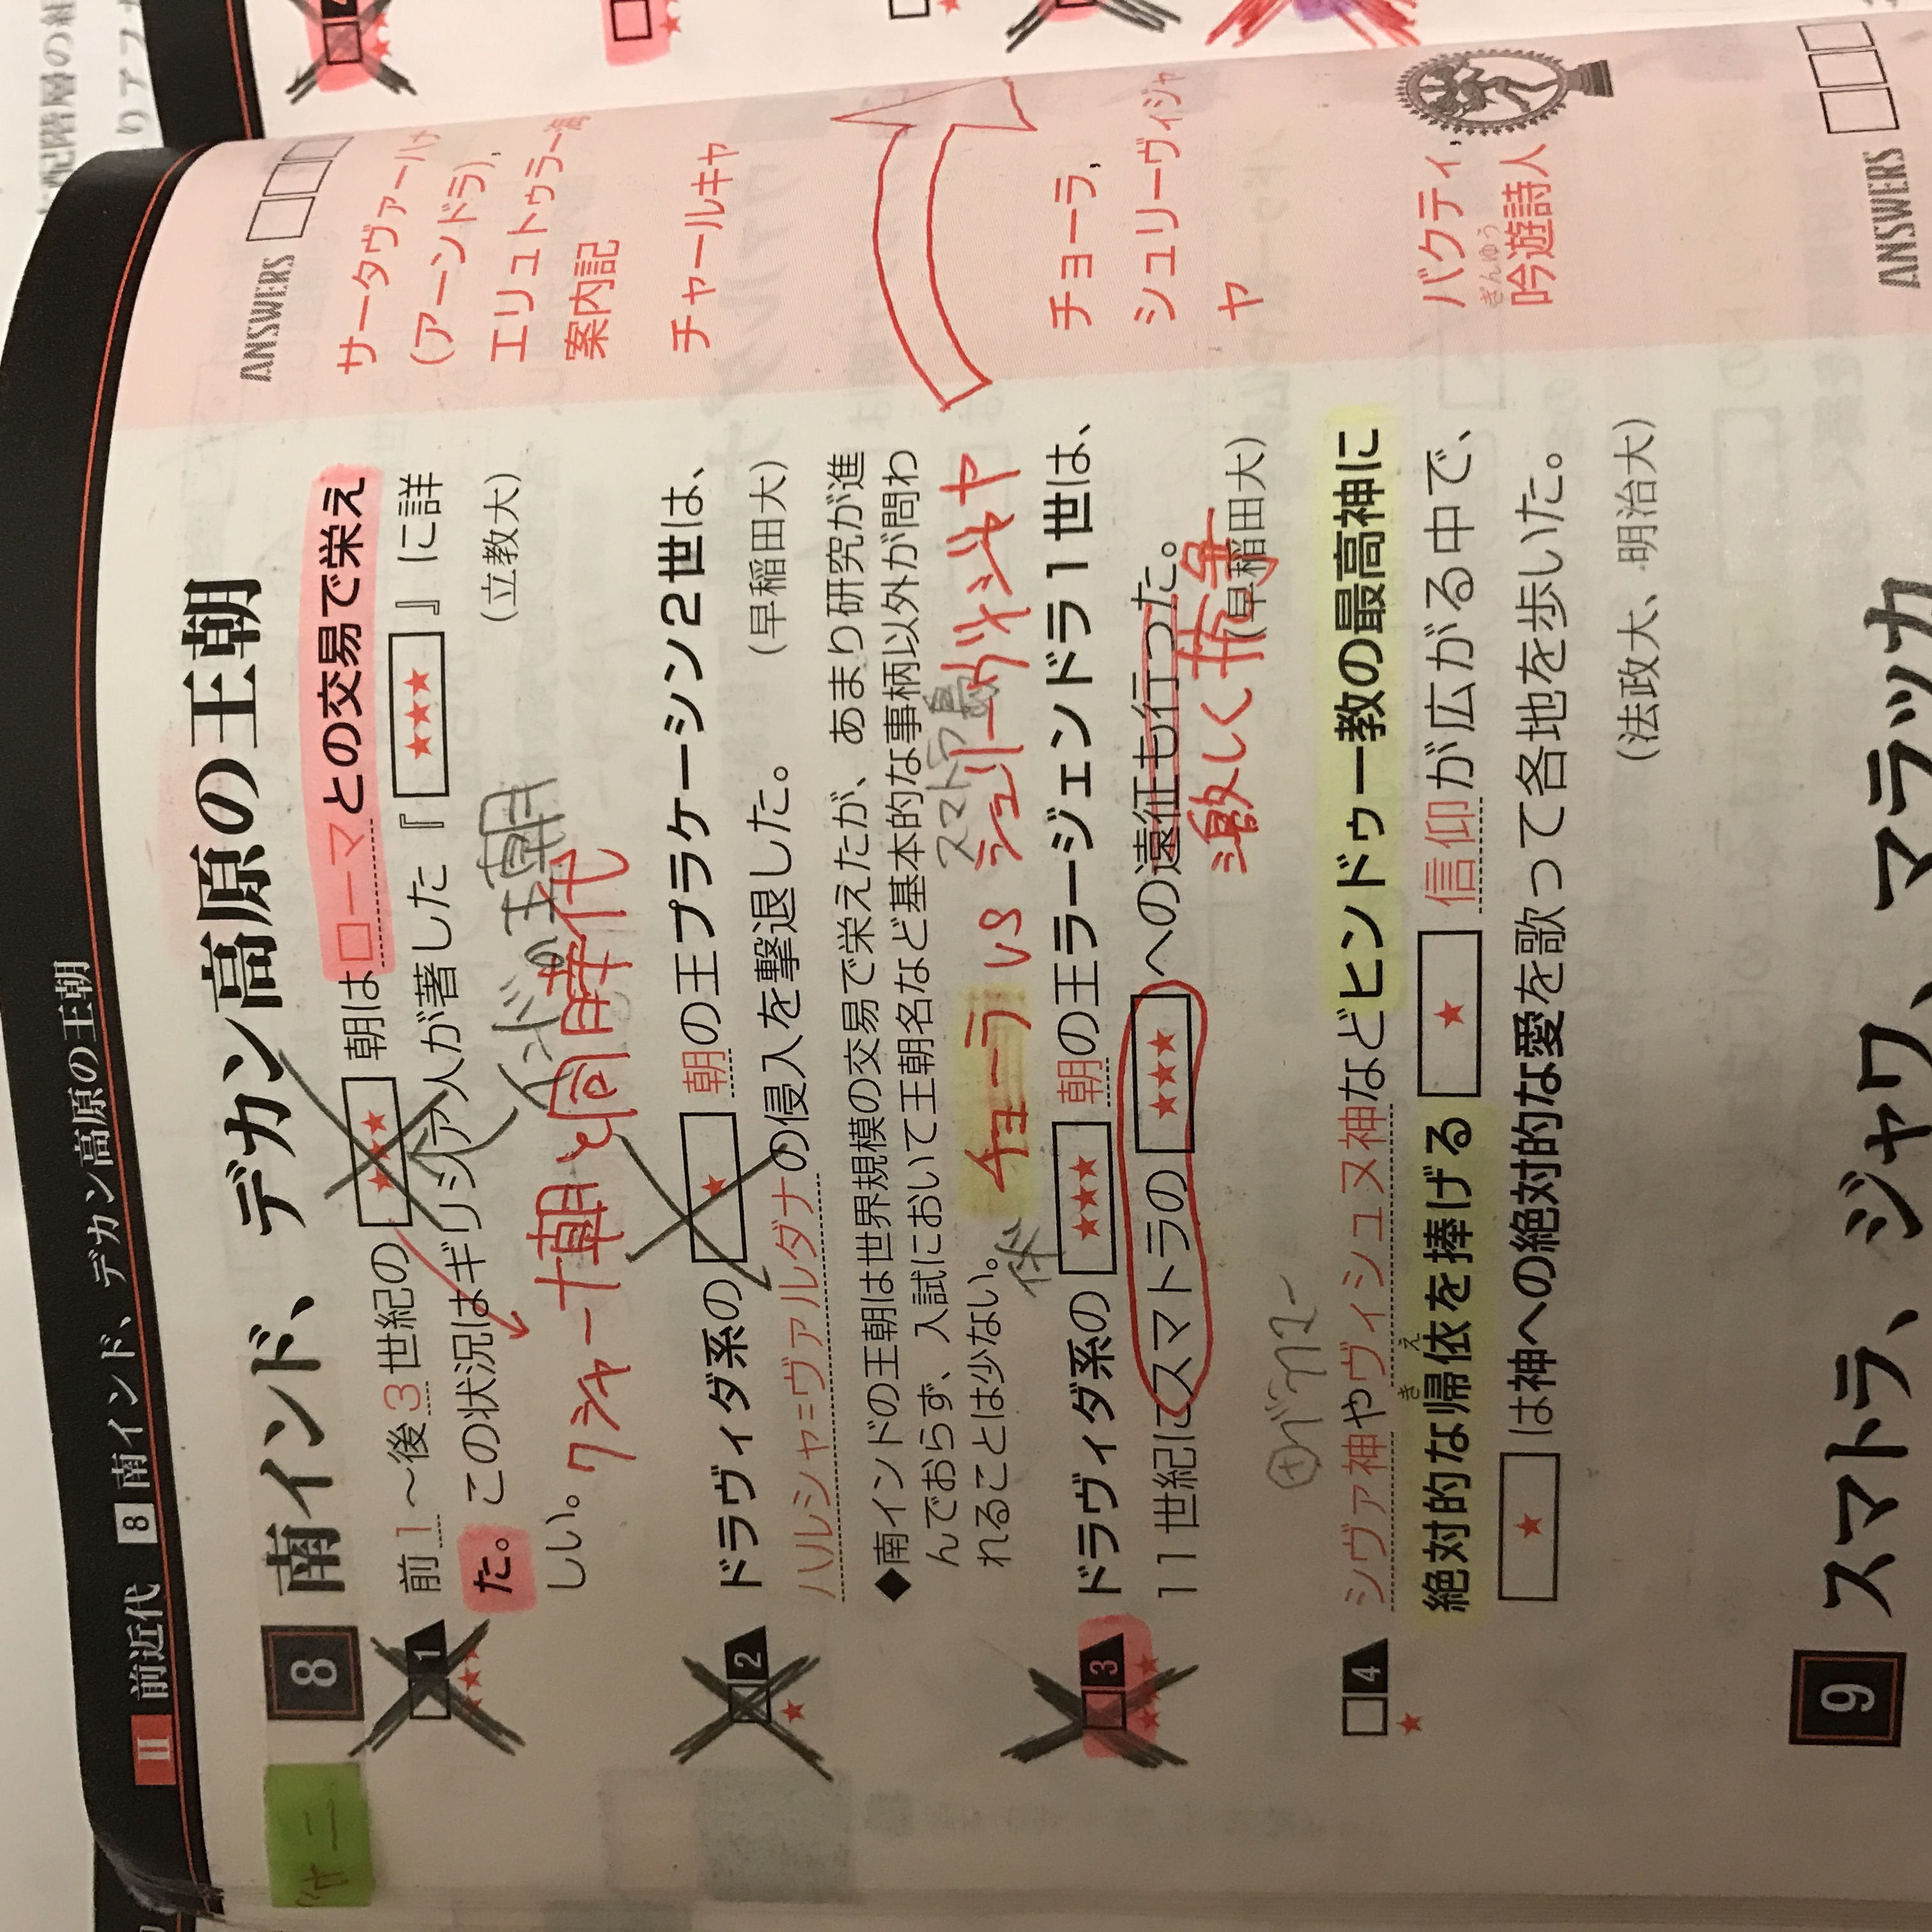 II 前近代 8 南インド、デカン高原の王朝
8 南インド、デカン高原の王朝
ANSWERS
1
★★★
前1〜後3世紀の ★★★ 朝はローマとの交易で栄え
た。この状況はギリシア人が著した『 ★★★ 』に詳
しい。
(立教大)
サータヴァーハナ
(アーンドラ),
エリュトゥラー海
案内記
インドの王朝
クシャーナ朝と同時代
2
★
ドラヴィダ系の ★ 朝の王プラケーシン2世は、
ハルシャ=ヴァルダナの侵入を撃退した。
(早稲田大)
チャールキャ
◆南インドの王朝は世界規模の交易で栄えたが、あまり研究が進
んでおらず、入試において王朝名など基本的な事柄以外が問わ
れることは少ない。
スマトラ島
チョーラ vs シュリーヴィジャヤ
3
★★★
ドラヴィダ系の ★★★ 朝の王ラージェンドラ1世は、
11世紀にスマトラの ★★★ への遠征も行った。
激しく抗争
(早稲田大)
チョーラ,
シュリーヴィジャ
ヤ
4
★
シヴァ神やヴィシュヌ神などヒンドゥー教の最高神に
絶対的な帰依を捧げる ★ 信仰が広がる中で、
きえ
★ は神への絶対的な愛を歌って各地を歩いた。
(法政大、明治大)
バクティ,
吟遊詩人
ぎんゆう
9 スマトラ、ジャワ、マラッカ
ANSWERS